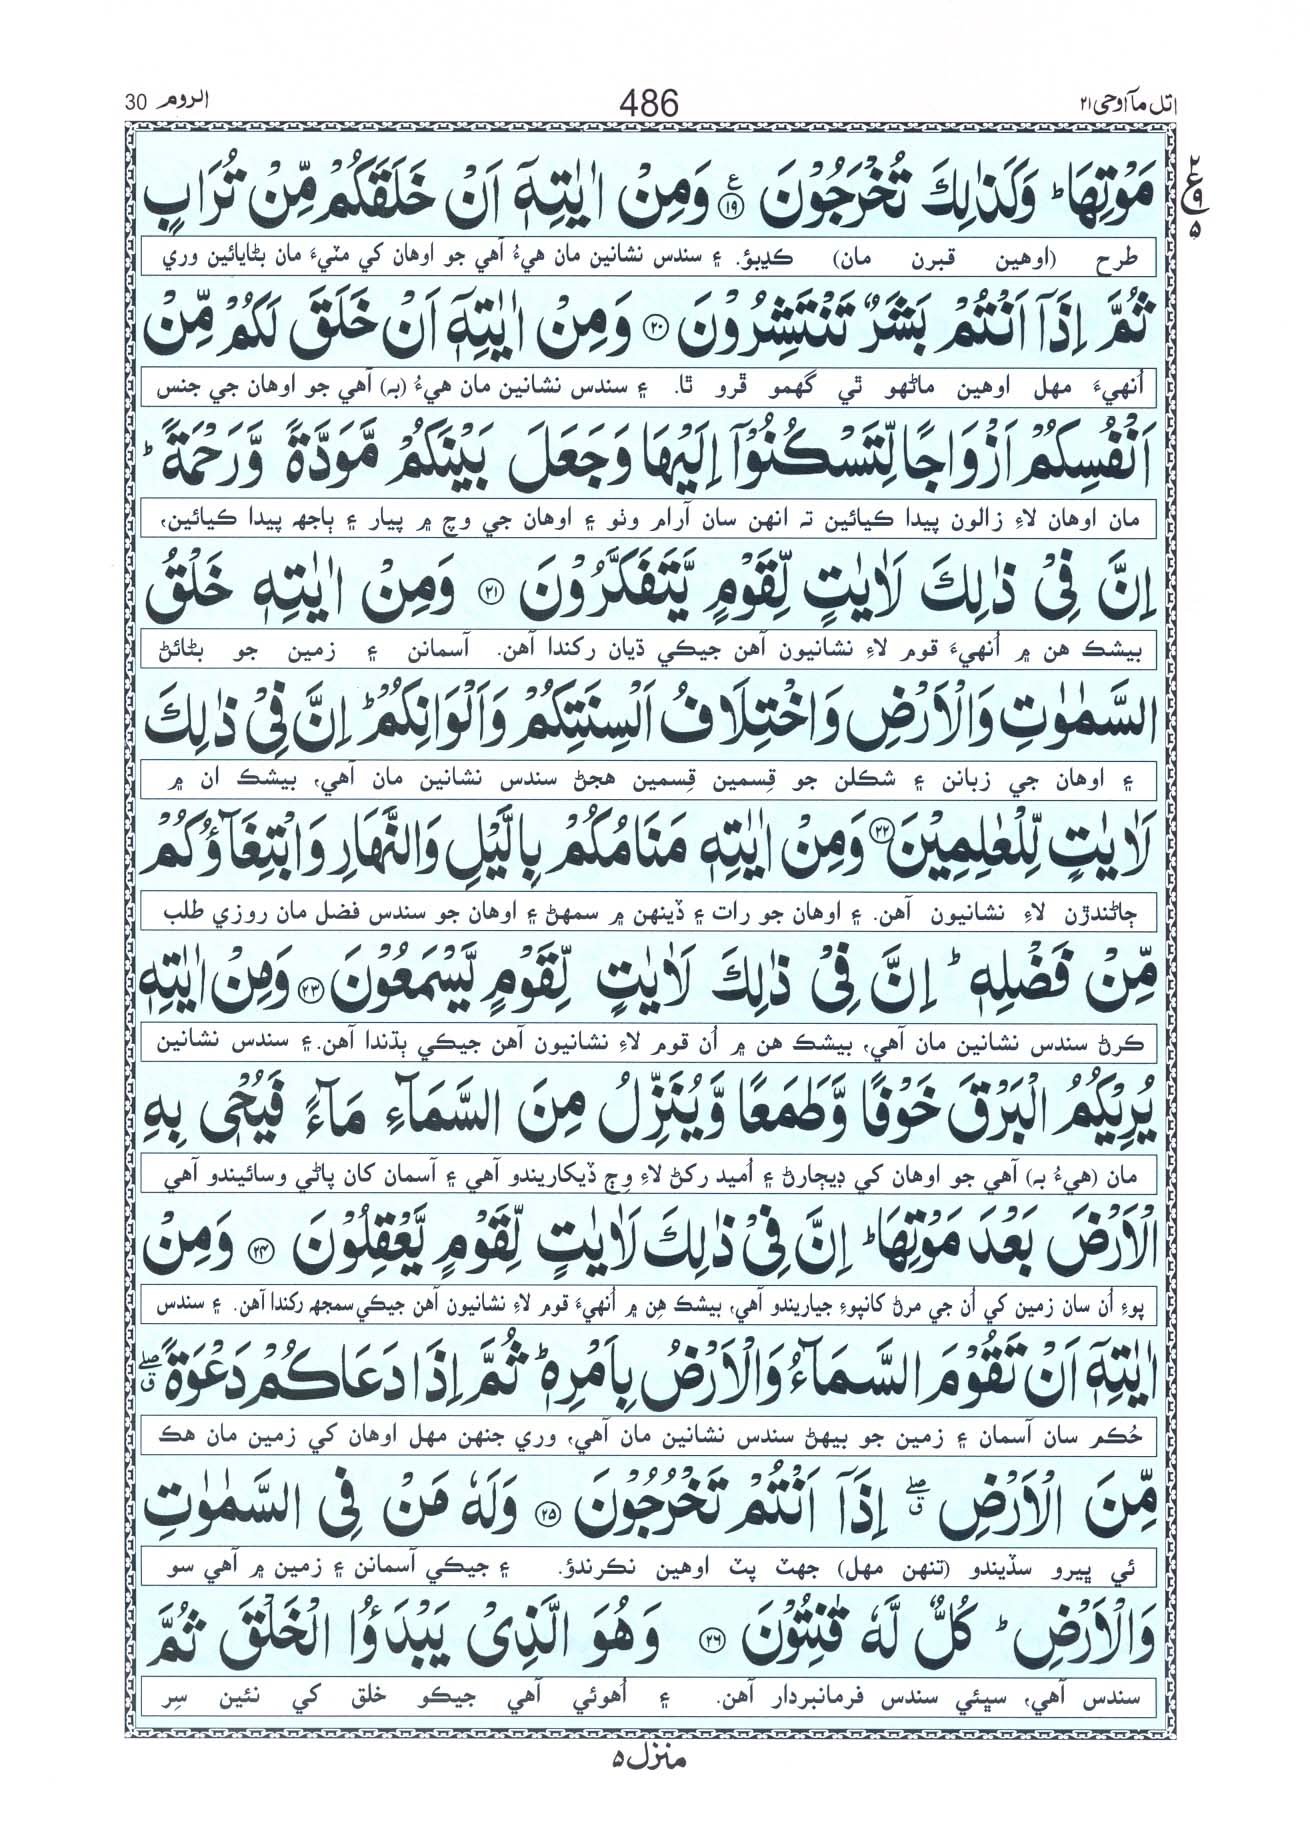 اتل مآاوحی ۲۱ 486 الروم 30
مَوْتِهَا ؕ وَكَذٰلِكَ تُخْرَجُوْنَ ۱۹ ع وَمِنْ اٰيٰتِهٖۤ اَنْ خَلَقَكُمْ مِّنْ تُرَابٍ
ع ۲ ۹ ۵
طرح (اوهين قبرن مان) ڪڍبؤ. ۽ سندس نشانين مان هيءُ آهي جو اوهان کي مٽيءَ مان بڻايائين وري
ثُمَّ اِذَاۤ اَنْتُمْ بَشَرٌ تَنْتَشِرُوْنَ ۲۰ وَمِنْ اٰيٰتِهٖۤ اَنْ خَلَقَ لَكُمْ مِّنْ
اُنهيءَ مهل اوهين ماڻهو ٿي گهمو ڦرو ٿا. ۽ سندس نشانين مان هيءُ (بہ) آهي جو اوهان جي جنس
اَنْفُسِكُمْ اَزْوَاجًا لِّتَسْكُنُوْۤا اِلَيْهَا وَجَعَلَ بَيْنَكُمْ مَّوَدَّةً وَّرَحْمَةً ؕ
مان اوهان لاءِ زالون پيدا ڪيائين تہ انهن سان آرام وٺو ۽ اوهان جي وچ ۾ پيار ۽ ٻاجهہ پيدا ڪيائين،
اِنَّ فِيْ ذٰلِكَ لَاٰيٰتٍ لِّقَوْمٍ يَّتَفَكَّرُوْنَ ۲۱ وَمِنْ اٰيٰتِهٖ خَلْقُ
بيشڪ هن ۾ اُنهيءَ قوم لاءِ نشانيون آهن جيڪي ڌيان رکندا آهن. آسمانن ۽ زمين جو بڻائڻ
السَّمٰوٰتِ وَالْاَرْضِ وَاخْتِلَافُ اَلْسِنَتِكُمْ وَاَلْوَانِكُمْ ؕ اِنَّ فِيْ ذٰلِكَ
۽ اوهان جي زبانن ۽ شڪلن جو قِسمين قِسمين هجڻ سندس نشانين مان آهي، بيشڪ ان ۾
لَاٰيٰتٍ لِّلْعٰلِمِيْنَ ۲۲ وَمِنْ اٰيٰتِهٖ مَنَامُكُمْ بِالَّيْلِ وَالنَّهَارِ وَابْتِغَآؤُكُمْ
ڄاڻندڙن لاءِ نشانيون آهن. ۽ اوهان جو رات ۽ ڏينهن ۾ سمهڻ ۽ اوهان جو سندس فضل مان روزي طلب
مِّنْ فَضْلِهٖ ؕ اِنَّ فِيْ ذٰلِكَ لَاٰيٰتٍ لِّقَوْمٍ يَّسْمَعُوْنَ ۲۳ وَمِنْ اٰيٰتِهٖ
ڪرڻ سندس نشانين مان آهي، بيشڪ هن ۾ اُن قوم لاءِ نشانيون آهن جيڪي ٻڌندا آهن. ۽ سندس نشانين
يُرِيْكُمُ الْبَرْقَ خَوْفًا وَّطَمَعًا وَّيُنَزِّلُ مِنَ السَّمَآءِ مَآءً فَيُحْيٖ بِهِ
مان (هيءُ بہ) آهي جو اوهان کي ڊيڄارڻ ۽ اُميد رکڻ لاءِ وِڄ ڏيکاريندو آهي ۽ آسمان کان پاڻي وسائيندو آهي
الْاَرْضَ بَعْدَ مَوْتِهَا ؕ اِنَّ فِيْ ذٰلِكَ لَاٰيٰتٍ لِّقَوْمٍ يَّعْقِلُوْنَ ۲۴ وَمِنْ
پوءِ اُن سان زمين کي اُن جي مرڻ کانپوءِ جياريندو آهي، بيشڪ هِن ۾ اُنهيءَ قوم لاءِ نشانيون آهن جيڪي سمجهہ رکندا آهن. ۽ سندس
اٰيٰتِهٖۤ اَنْ تَقُوْمَ السَّمَآءُ وَالْاَرْضُ بِاَمْرِهٖ ؕ ثُمَّ اِذَا دَعَاكُمْ دَعْوَةً ۖق
حُڪم سان آسمان ۽ زمين جو بيهڻ سندس نشانين مان آهي، وري جنهن مهل اوهان کي زمين مان هڪ
مِّنَ الْاَرْضِ ۖق اِذَاۤ اَنْتُمْ تَخْرُجُوْنَ ۲۵ وَلَهٗ مَنْ فِي السَّمٰوٰتِ
ئي ڀيرو سڏيندو (تنهن مهل) جهٽ پٽ اوهين نڪرندؤ. ۽ جيڪي آسمانن ۽ زمين ۾ آهي سو
وَالْاَرْضِ ؕ كُلٌّ لَّهٗ قٰنِتُوْنَ ۲۶ وَهُوَ الَّذِيْ يَبْدَؤُا الْخَلْقَ ثُمَّ
سندس آهي، سڀئي سندس فرمانبردار آهن. ۽ اُهوئي آهي جيڪو خلق کي نئين سِر
منزل ۵